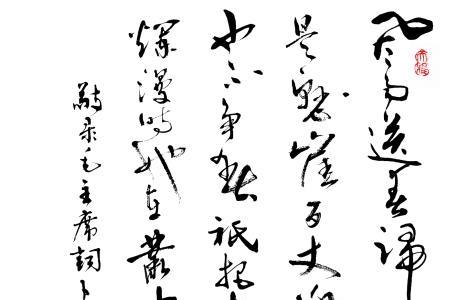 风雨送春归
是悬崖百丈
也不争春祇把
烂漫时她在丛
敬录毛主席词卜